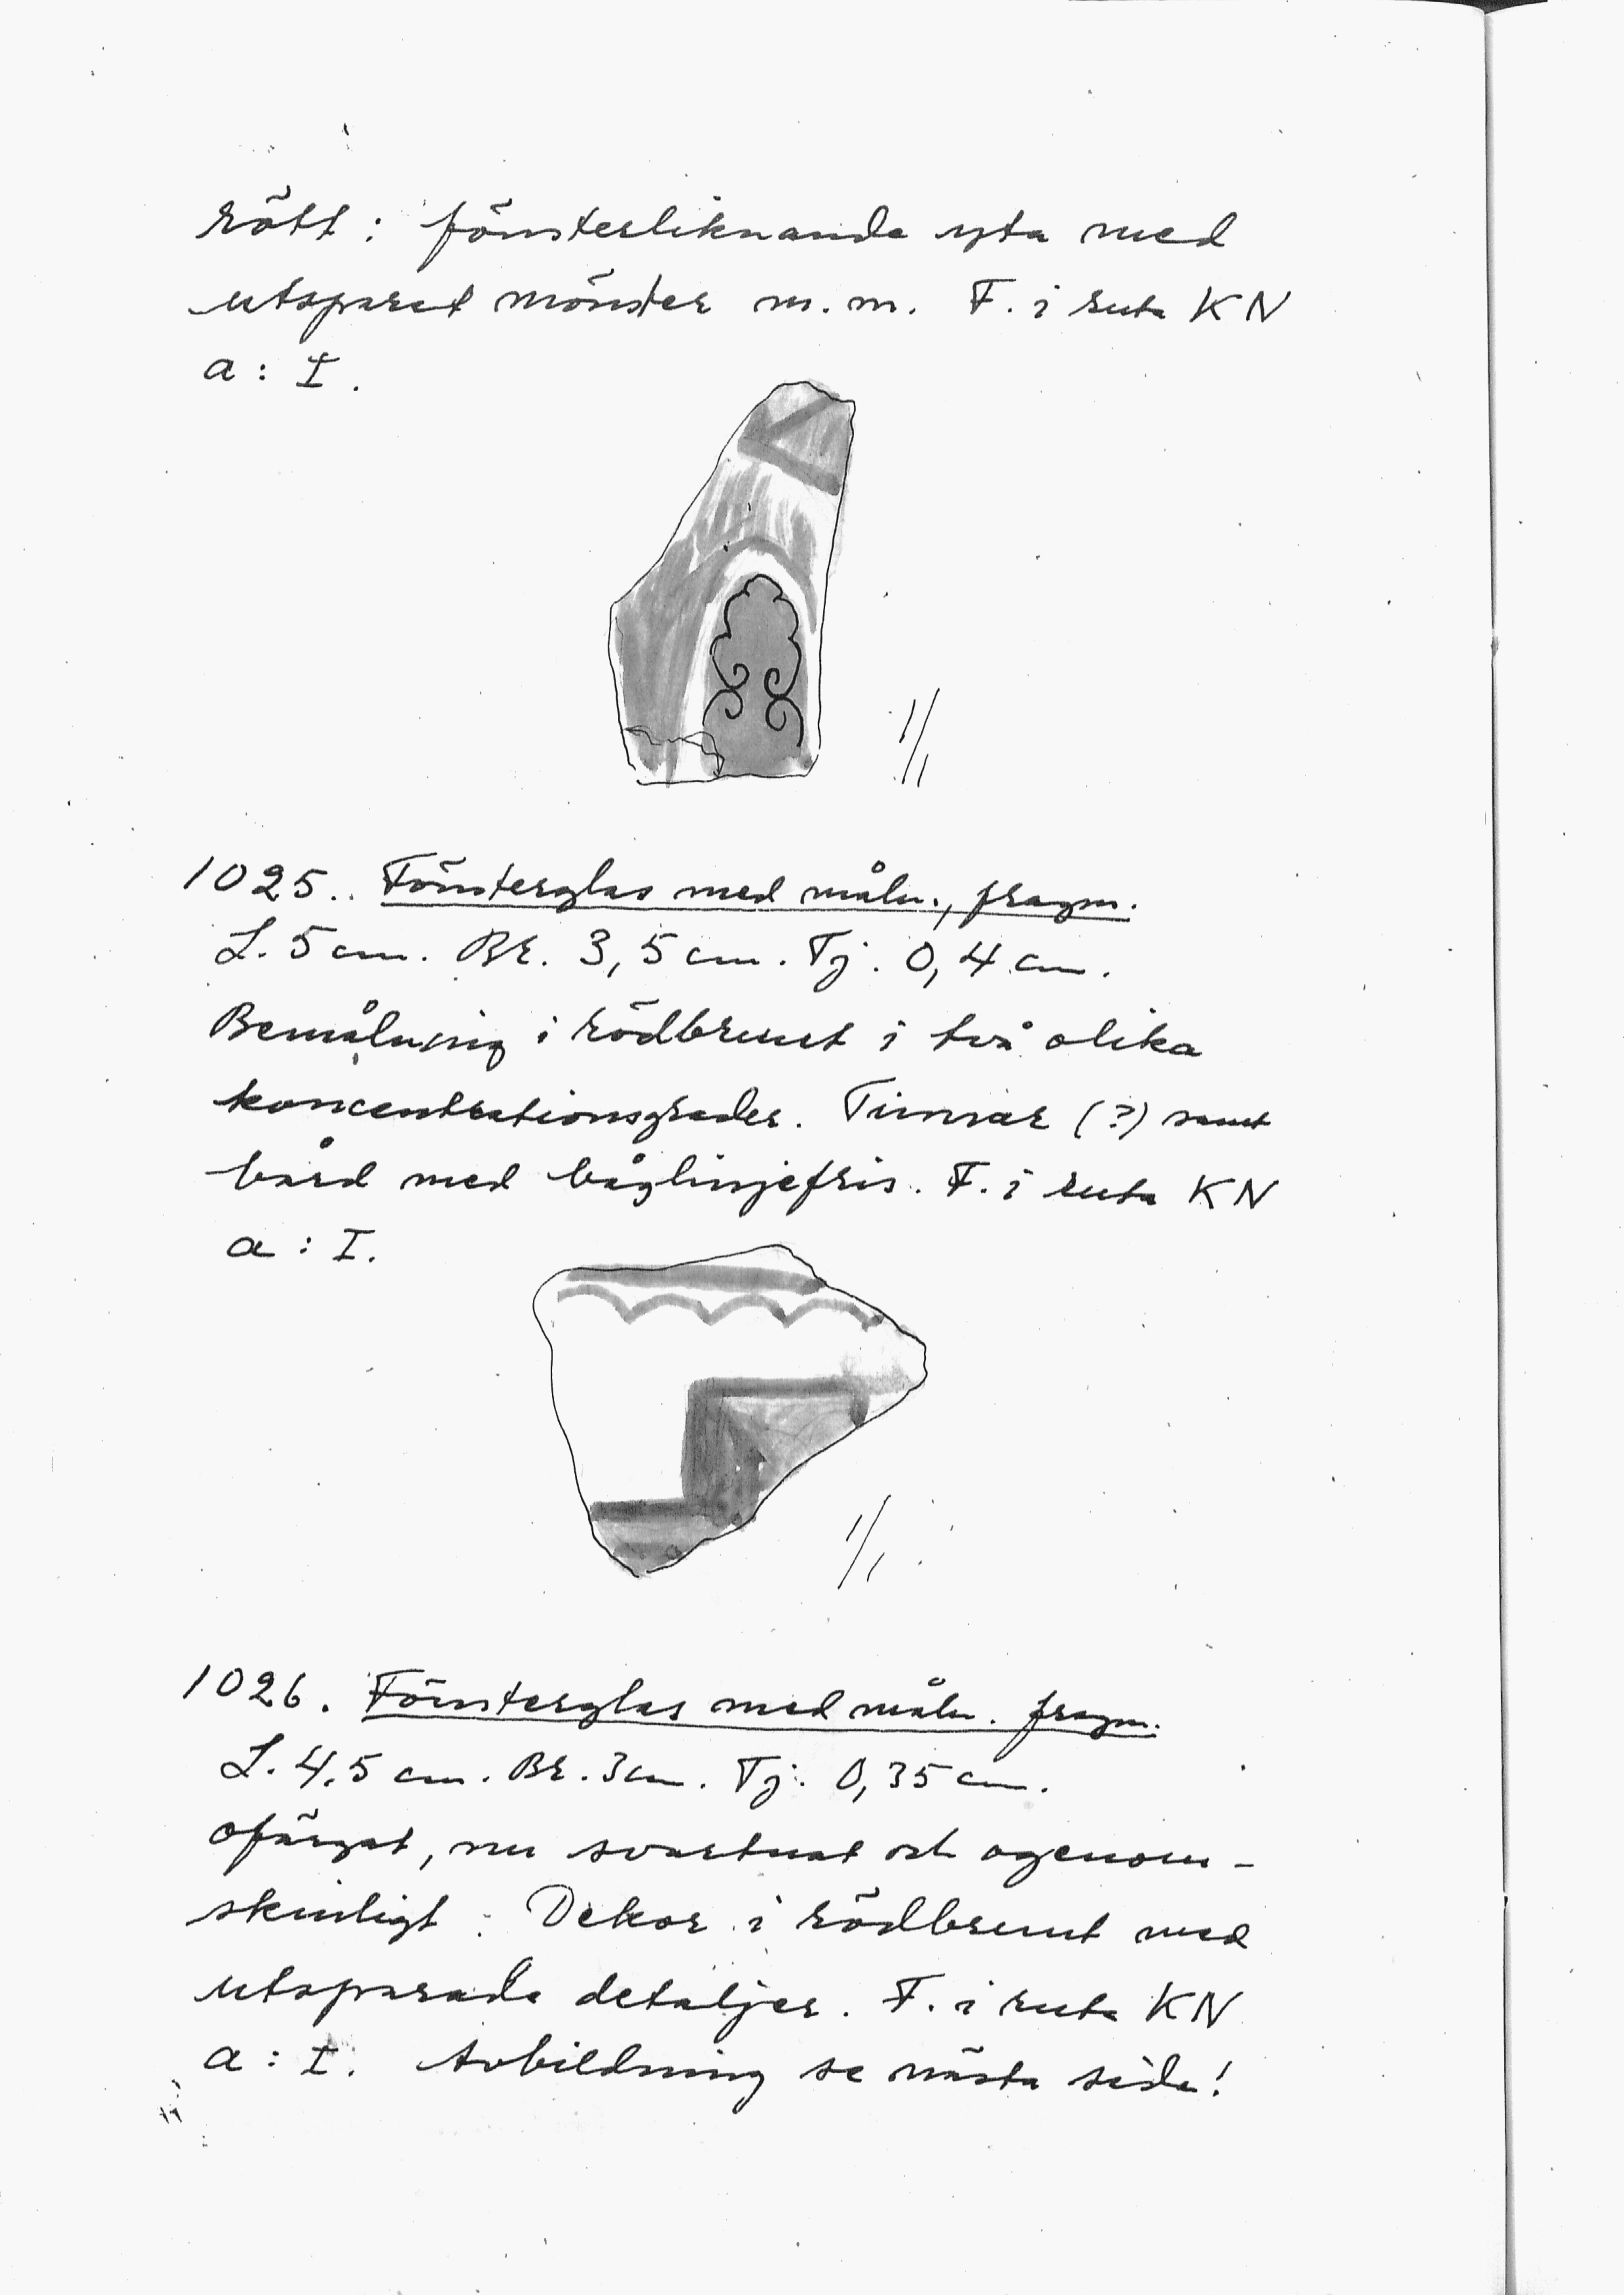 rött: fönsterliknande yta med
utsparat mönster m.m. F. i ruta KN
a: I.
1/1
1025. Fönsterglas med måln., fragm.
L. 5 cm. Br. 3,5 cm. Tj. 0,4 cm.
Bemålning i rödbrunt i två olika
koncentrationsgrader. Tinnar (?) samt
bård med båglinjefris. F. i ruta KN
a: I.
1/1
1026. Fönsterglas med måln. fragm.
L. 4,5 cm. Br. 3 cm. Tj. 0,35 cm.
ofärgat, nu svartnat och ogenom-
skinligt. Dekor i rödbrunt med
utsparade detaljer. F. i ruta KN
a: I. Avbildning se nästa sida!